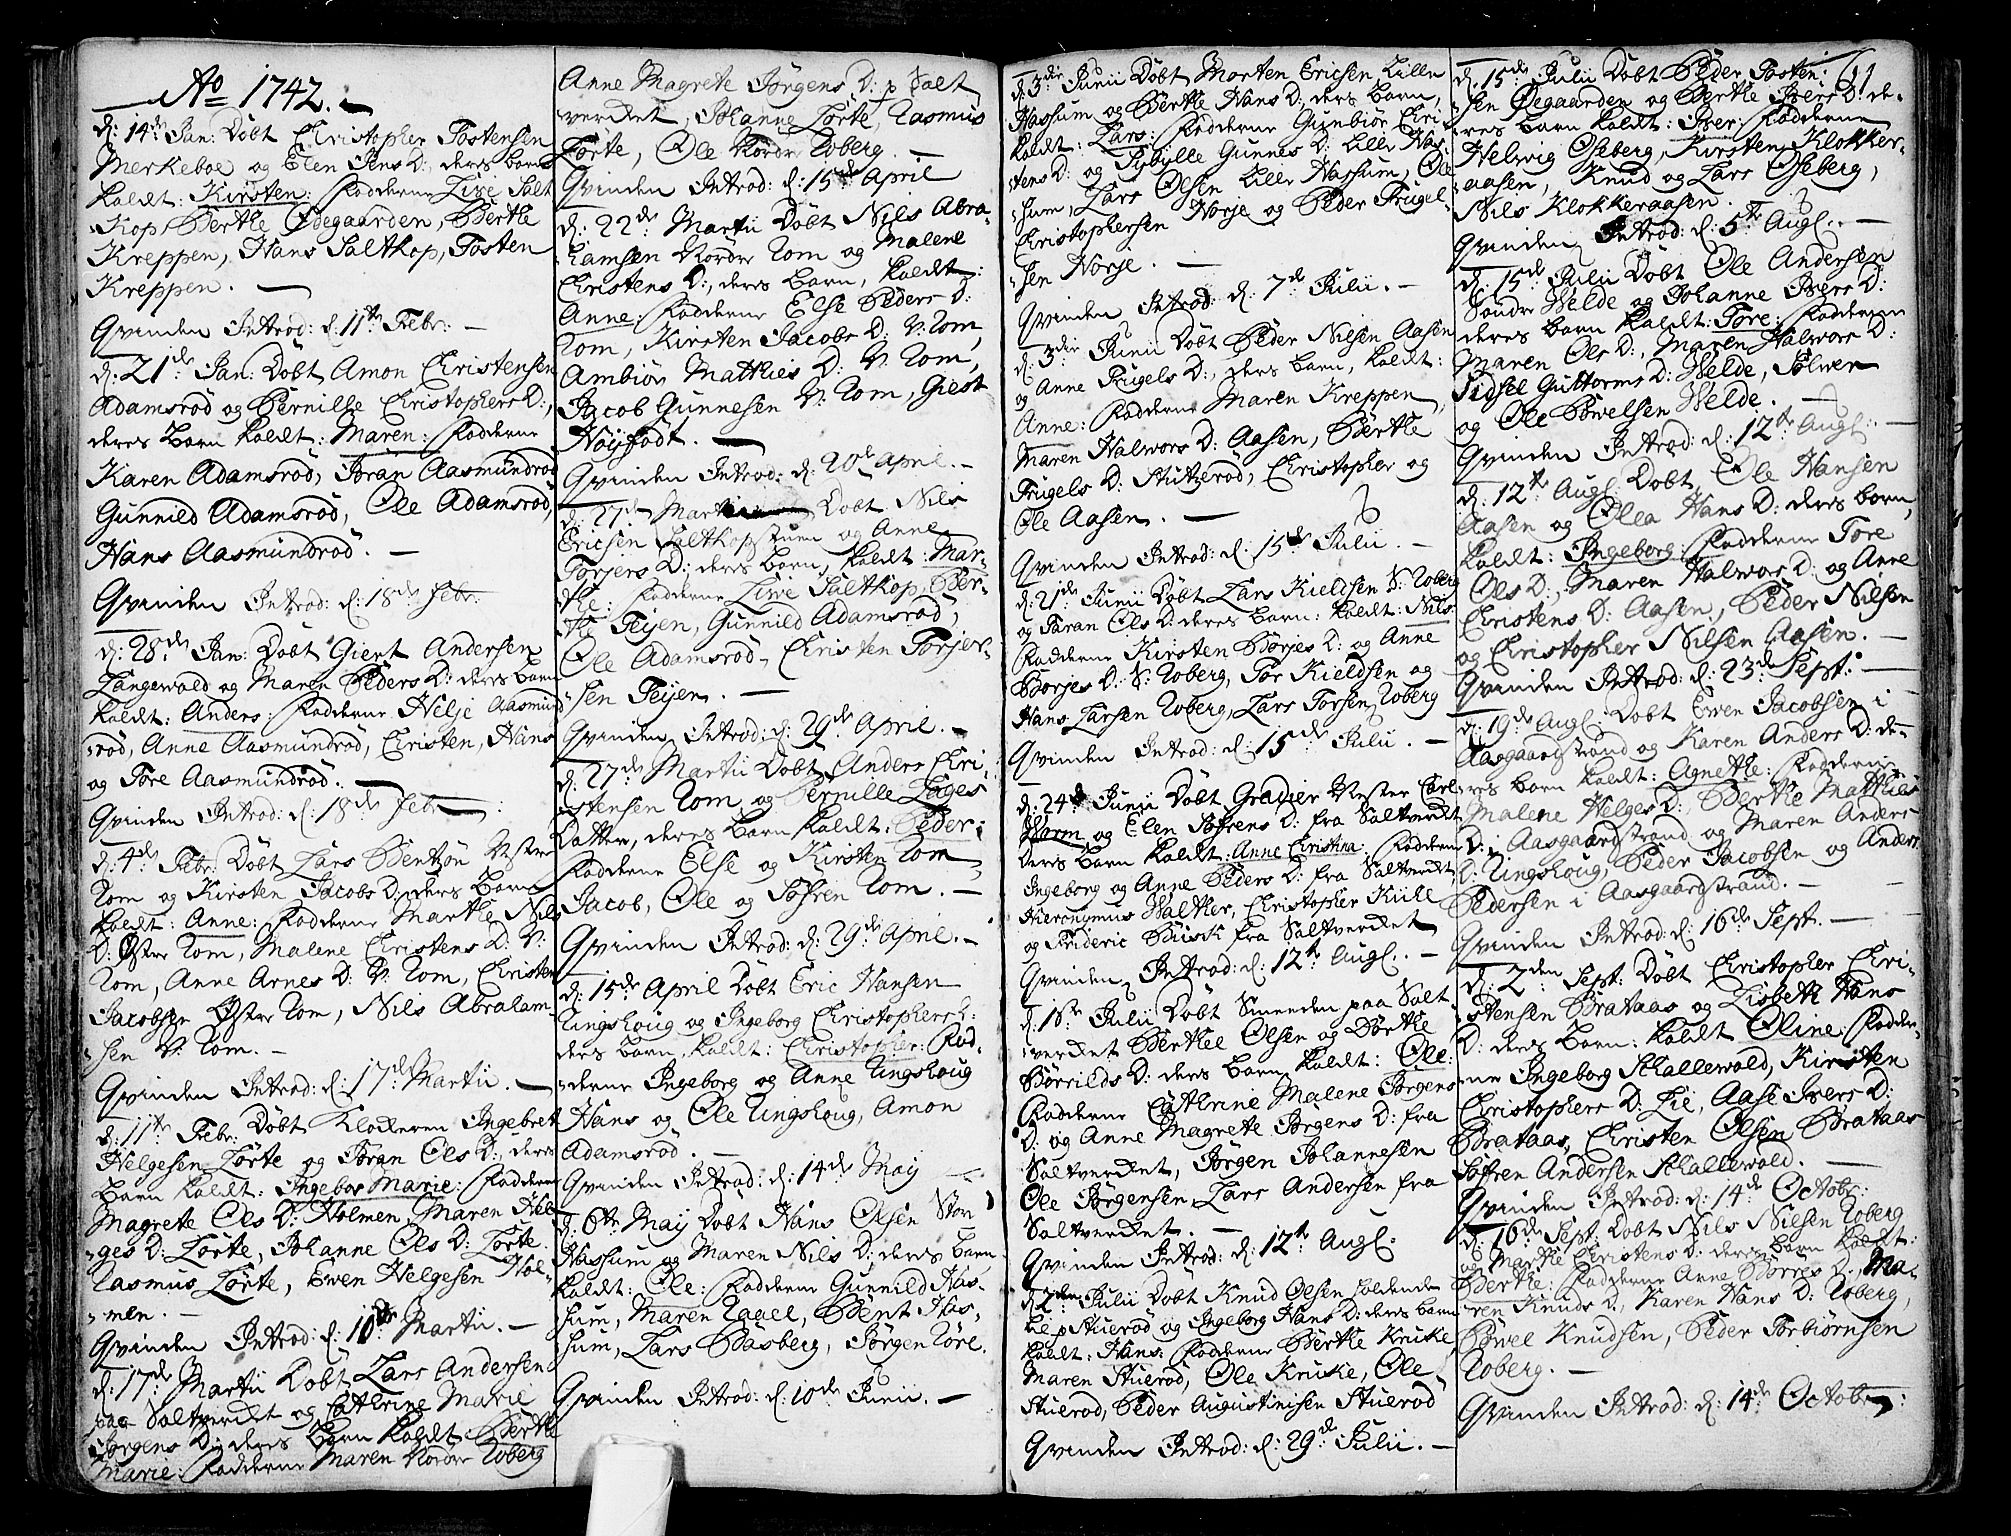 Ao 1742.
d: 14de Jan: Döbt Christopher Tostensen
Merkeboe og Elen Jens D: deres barn
kaldt: Kirsten: Fadderne Live Salt
Kop, Berthe Ødegaarden, Berthe
Kreppen, Hans Saltkop, Tosten
Kreppen.
Qvinden Introd: d: 11te Febr:
d: 21de Jan: Döbt Amon Christensen
Adamsröd og Pernille Christophers D:,
deres barn kaldt: Maren: Fadderne
Karen Adamsröd, Jöran Aasmundröd
Gunnild Adamsröd, Ole Adamsröd,
Hans Aasmundröd.
Qvinden Introd: d: 18de Febr:
d: 28de Jan: Döbt Giert Andersen
Langewald og Maren Peders D: deres barn
kaldt: Anders: Fadderne Helje Aasmund
röd, Anne Aasmundröd, Christen, Hans
og Tore Aasmundröd.
Qvinden Introd: d: 18de Febr:
d: 4de Febr: Döbt Lars Bentzön Vester
Rom og Kirsten Jacobs D: deres barn
kaldt: Anne: Fadderne Marthe Nils
D: Øster Rom, Malene Christens D: V:
Rom, Anne Arnes D: V: Rom, Christen
Jacobsen Øster Rom, Nils Abraham-
sen V: Rom.
Qvinden Introd: d: 17de Martii.
d: 11te Febr: Döbt Klokkeren Ingebret
Helgesen Lörte og Jöran Ols D:, deres
barn kaldt: Ingebor Marie: Faddern
Magrete Ols D: Holmen, Maren Hel-
ges D: Lörte, Johanne Ols D: Lörte
Rasmus Lörte, Ewen Helgesen Hol-
men.
Qvinden Introd: d: 18de Martii.
d: 17de Martii Döbt Lars Andersen
paa Saltverdet og Cathrine Marie
Jörgens D: deres barn kaldt Berthe
Marie: Fadderne Maren Nordre Roberg
Anne Magrete Jörgens D: p Salt
verdet, Johanne Lörte, Rasmus
Lörte, Ole Nordre Roberg.
Qvinden Introd: d: 15de April
d: 22de Martii Döbt Nils Abra-
hamsen Nordre Rom og Malene
Christens D:, deres barn, kaldt:
Anne: Fadderne Else Peders D:
Rom, Kirsten Jacobs D: V: Rom,
Ambiör Matthies D: V: Rom,
Jacob Gunnesen V: Rom, Giest
Höyjödt.
Qvinden Introd: d: 20de April.
d: 27de Martii Döbt Nils
Ericsen Saltkopstuen og Anne
Torjers D: deres barn, kaldt: Mar-
the: Fadderne Live Saltkop, Ber-
the Teijen, Gunnild Adamsröd,
Ole Adamsröd, Christen Torjer-
sen Teijen.
Qvinden Introd: d: 29de April.
d: 27de Martii Döbt Anders Chri-
stensen Rom og Pernille Lages
Datter, deres barn kaldt: Peder:
Fadderne Else og Kirsten Rom
Jacob, Ole og Söfren Rom.
Qvinden Introd: d: 29de April.
d: 15de April Döbt Eric Hansen
Ringshoug og Ingeborg Christophers D:
deres barn kaldt: Christopher: Fad-
derne Ingeborg og Anne Ringshoug
Hans og Ole Ringshoug, Amon
Adamsröd.
Qvinden Introd: d: 14de May
d: 6te May Döbt Hans Olsen Stor
Hassum og Maren Nils D: deres barn
kaldt: Ole: Fadderne Gunnild Has-
sum, Maren Ragel, Bent Has-
sum, Lars Basberg, Jörgen Röre.
Qvinden Introd: d: 10de Junii.
d: 3die Junii Döbt Morten Ericsen Lille
Hassum og Berthe Hans D:, ders barn,
kaldt: Lars: Fadderne Gunbiör Chri-
stens D: og Sybylle Gunnes D: Lille Has-
sum, Lars Olsen Lille Hassum, Ole
Christophersen Norje og Peder Trugel-
sen Norje.
Qvinden Introd: d: 7de Julii.
d: 3die Junii Döbt Peder Nilsen Aasen
og Anne Trugels D:, ders barn, kaldt:
Anne: Fadderne Maren Kreppen,
Maren Halwors D: Aasen, Berthe
Trugels D: Skitzeröd, Christopher og
Ole Aasen.
Qvinden Introd: d: 15de Julii.
d: 21de Junii Döbt Lars Kieldsen S: Roberg
og Taran Ols D: deres barn: kaldt: Nils:
Fadderne Kirsten Börjes D: og Anne
Börjes D: S: Roberg, Tor Kieldsen og
Hans Larsen Roberg, Lars Torsen Roberg
Qvinden Introd: d: 15de Julii.
d: 24de Junii Döbt Gradier Mester Carl
Worm og Elen Söfrens D: fra Saltverdet
deres barn kaldt: Anne Christina: Fadderne
Ingeborg og Anne Peders D: fra Saltverdet,
Hieronymus Walther, Christopher Kühl
og Frideric Busch fra Saltverdet
Qvinden Introd: d: 12te Augl.
d: 16de Julii Döbt Smeeden paa Salt
verdet Berthel Olsen og Dörthe
Börrilds D: ders barn kaldt: Ole:
Fadderne Cathrine Malene Jörgens
D: og Anne Magrete Jörgens D: fra
Saltverdet, Jörgen Johannesen
Ole Jörgensen, Lars Andersen fra
Saltverdet.
Qvinden Introd: d: 12te Augl:
d: 2den Julii Döbt Knud Olsen
p Stueröd og Ingeborg Hans D: ders barn
kaldt: Hans: Fadderne Berthe Kruke,
Maren Stueröd, Ole Kruke, Ole
Stueröd, Peder Augustinisen Stueröd
Qvinden Introd: d: 29de Julii.
61
d: 15de Julii Döbt Peder Tosten-
sen Øegaarden og Berthe Ivers D: de-
res barn kaldt: Iver: Fadderne
Helwig Oseberg, Kirsten Klokker-
aasen, Knud og Lars Oseberg,
Nils Klokkeraasen.
Qvinden Introd: d: 5te Augl.
d: 15de Julii Döbt Ole Andersen
Söndre Welde og Johanne Ivers D:
deres barn kaldt: Tore: Fadderne
Maren Ols D:, Maren Halwors D:
Sidsel Guttorms D: Welde, Sölwer
og Ole Pöwelsen Welde.
Qvinden Introd: d: 12te Augl:
d: 12te Augl. Döbt Ole Hansen
Aasen og Olea Hans D: ders barn,
kaldt: Ingeborg: Fadderne Tore
Ols D:, Maren Halwors D: og Anne
Christens D: Aasen, Peder Nilsen
og Christopher Nilsen Aasen.
Qvinden Introd: d: 23de Sept:
d: 19de Augl: Döbt Ewen Jacobsen i
Aasgaardstrand og Karen Anders D: de-
res barn kaldt: Agnethe: Fadderne
Malene Helges D: Berthe Matthies
D: i Aasgaardstrand og Maren Anders
D: Ringshoug, Peder Jacobsen og Anders
Pedersen i Aasgaardstrand.
Qvinden Introd: d: 16de Sept.
d: 2den Sept: Döbt Christopher Chri-
stensen Brataas og Lisbeth Hans
D: deres barn: kaldt Oline: Fadder-
ne Ingeborg Skallewald, Kirsten
Christophers D: Lie, Aase Ivers D:
Brataas, Christen Olsen Brataas
Söfren Andersen Skallewald.
Qvinden Introd: d: 14de Octobr:
d: 16de Sept: Döbt Nils Nilsen Roberg
og Marthe Christens D: deres barn kaldt:
Berthe: Fadderne Anne Börres D:, Ma-
ren Knuds D, Karen Hans D: Roberg,
Pöwel Knudsen, Peder Torbiörnsen
Roberg.
Qvinden Introd: d: 14de Octobr: